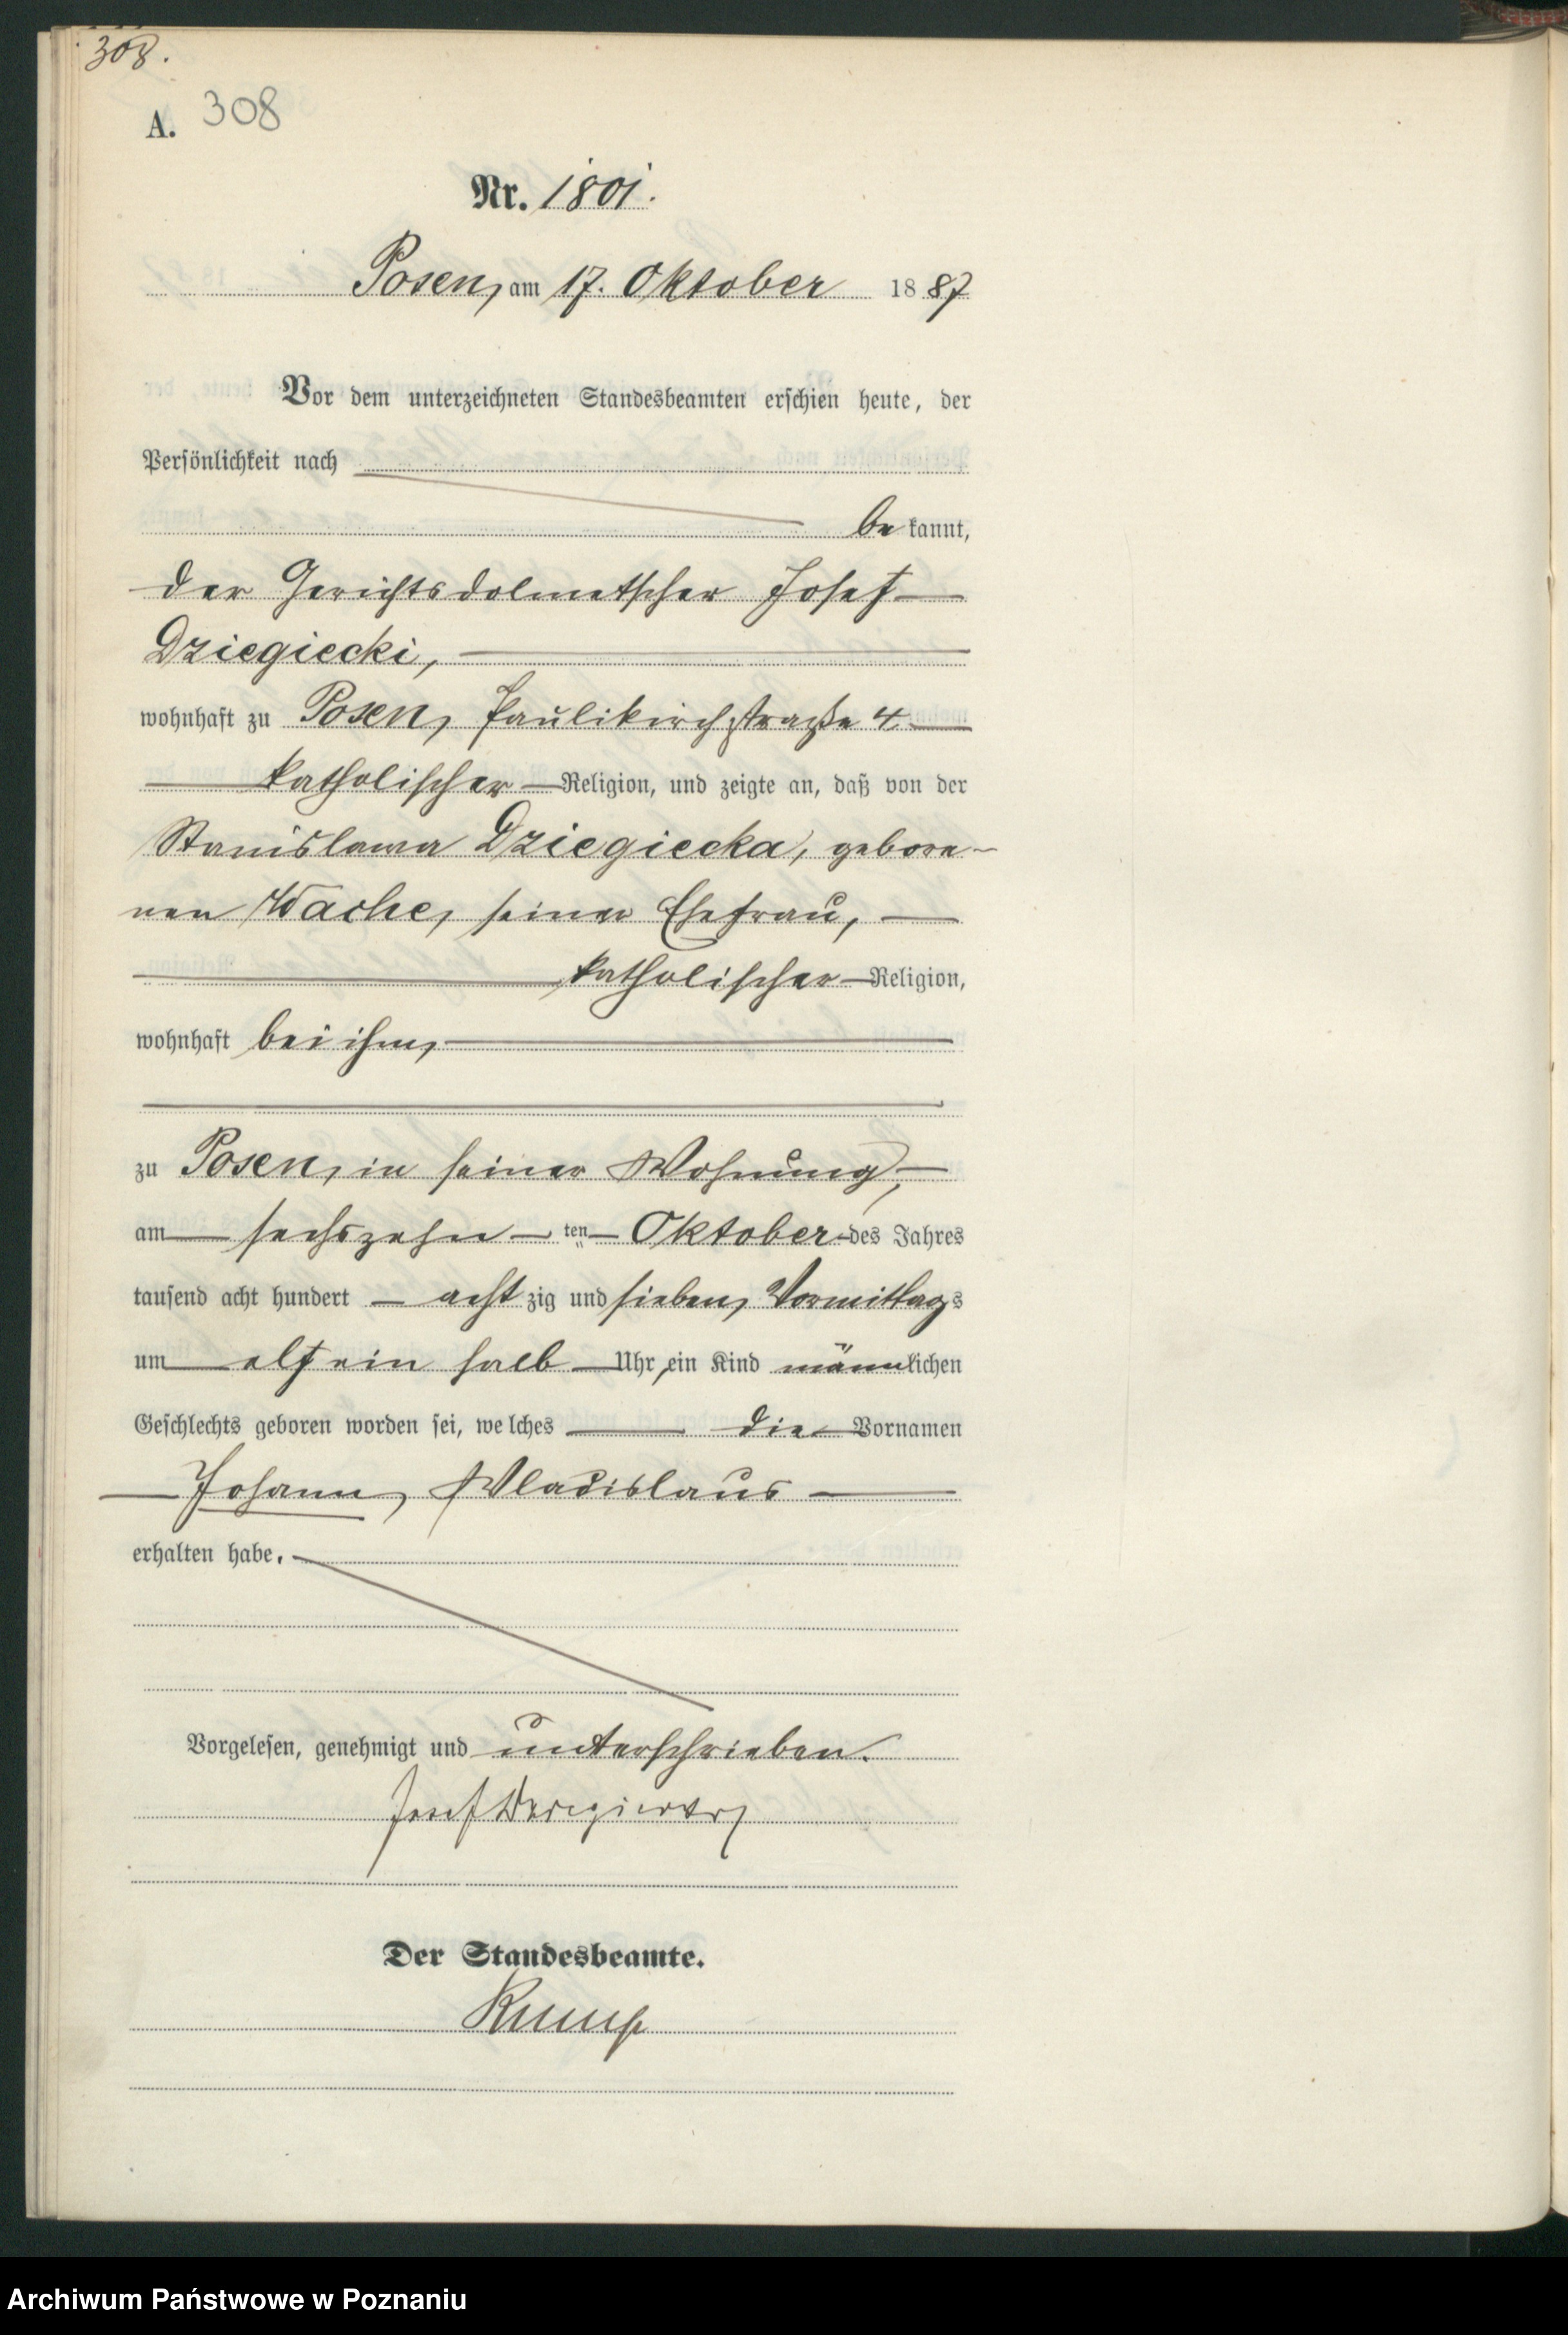 308.
A. 308
Nr. 1801.
Posen, am 17. Oktober 1887
Vor dem unterzeichneten Standesbeamten erschien heute, der
Persönlichkeit nach
be kannt,
der Gerichtsdolmetscher Josef
Dziegiecki,
wohnhaft zu Posen, Paulikirchstraße 4
katholischer Religion, und zeigte an, daß von der
Stanislawa Dziegiecka, gebore-
nen Wache, seiner Ehefrau,
katholischer Religion,
wohnhaft bei ihm,
zu Posen, in seiner Wohnung,
am sechszehn ten Oktober des Jahres
tausend acht hundert achtzig und sieben, Vormittags
um elf ein halb Uhr, ein Kind männlichen
Geschlechts geboren worden sei, welches die Vornamen
Johann, Wladislaus
erhalten habe.
Vorgelesen, genehmigt und unterschrieben.
Josef
Der Standesbeamte.
Archiwum Państwowe w Poznaniu